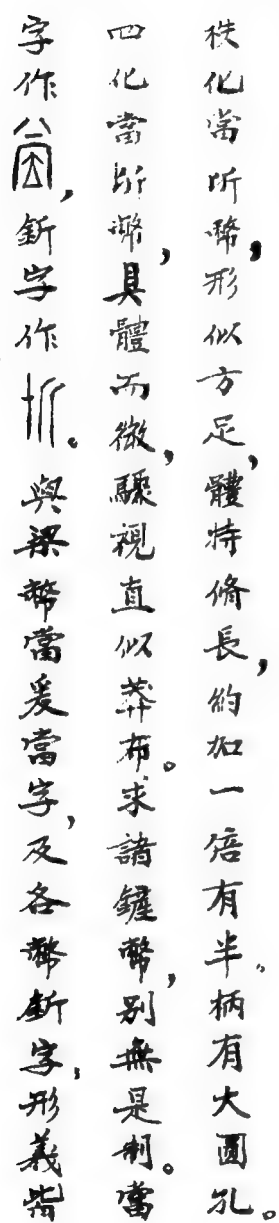 袟化當斦幣，形似方足，體特脩長，約加一倍有半。柄有大圓孔。
四化當斦幣，具體而微，驟視直似莽布。求諸鏟幣，別無是制。當
字作，釿字作。與梁幣當爰當字，及各幣釿字，形義皆